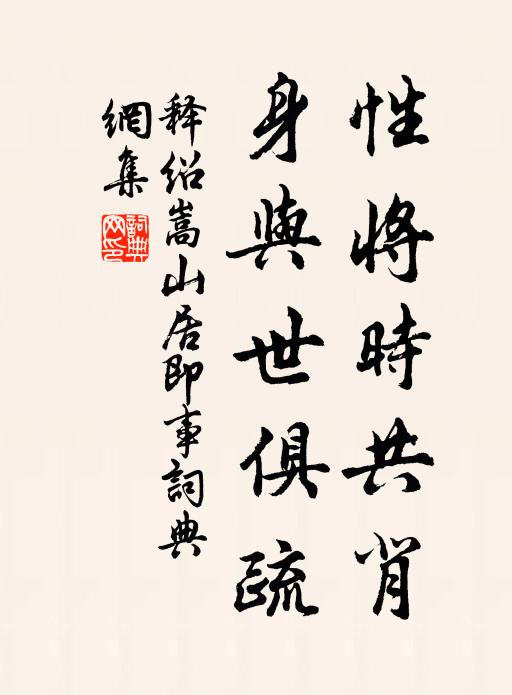 性將時共背
身與世俱疏
释紹嵩山居即事詞典
網集
詞典網印